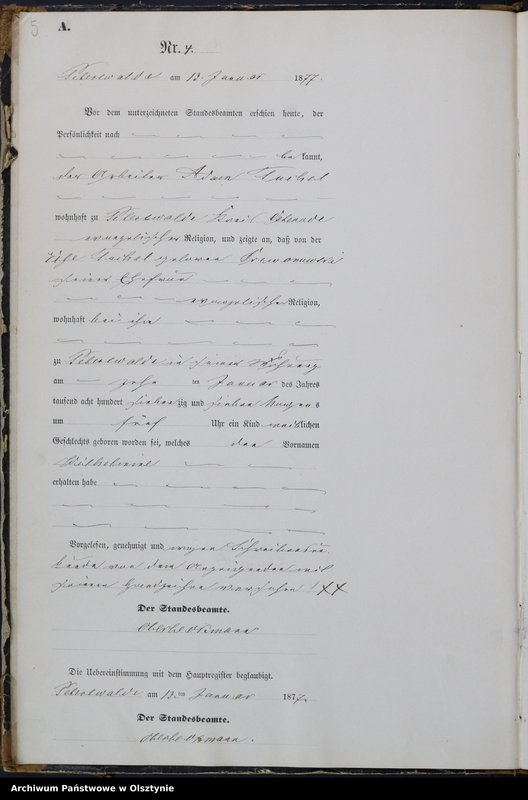 5
A.
Nr. 4.
Peterswalde am 13. Januar 1877.
Vor dem unterzeichneten Standesbeamten erschien heute, der
Persönlichkeit nach
be kannt,
der Arbeiter Adam
wohnhaft zu Peterswalde Kreis Osterode
evangelischer Religion, und zeigte an, daß von der
geboren
seiner Ehefrau
evangelischer Religion,
wohnhaft bei ihm
zu Peterswalde in seiner Wohnung
am zehn ten Januar des Jahres
tausend acht hundert sieben zig und sieben Morgens
um fünf Uhr ein Kind weiblichen
Geschlechts geboren worden sei, welches den Vornamen
Wilhelmine
erhalten habe
Vorgelesen, genehmigt und wegen Schreibensun
kunde von dem Anzeigenden mit
seinem Handzeichen versehen XX
Der Standesbeamte.
Die Uebereinstimmung mit dem Hauptregister beglaubigt.
Peterswalde am 13. ten Januar 1877.
Der Standesbeamte.
Archiwum Państwowe w Olsztynie